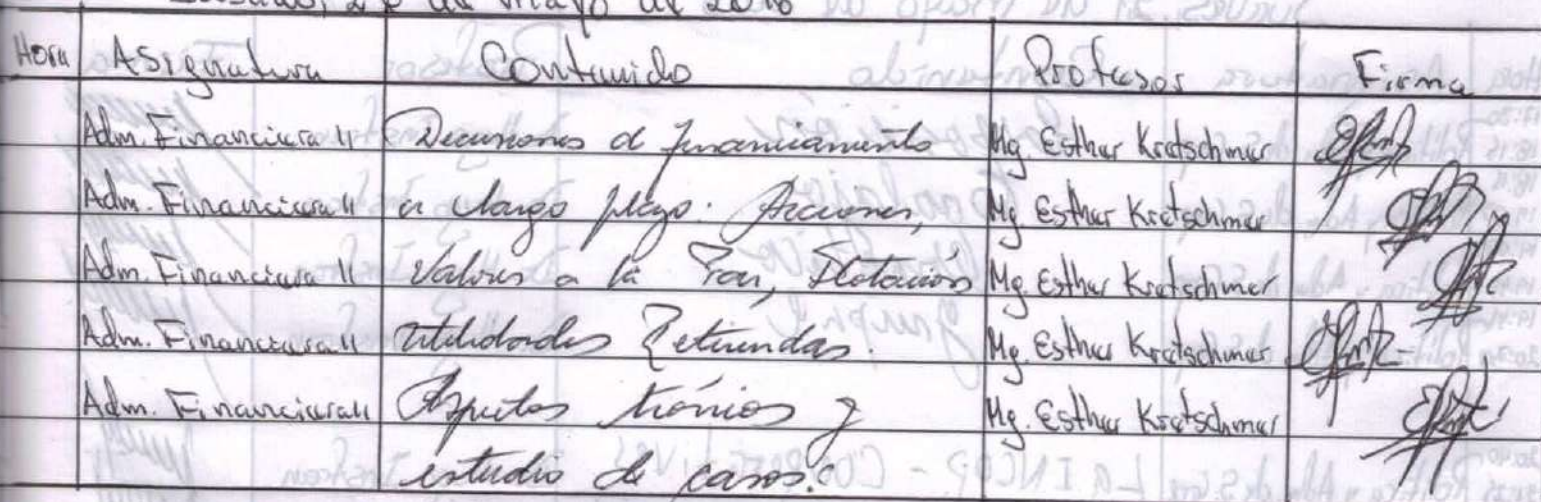 de mayo de 2018
Hora Asignatura Contenido Profesor Firma
Adm. Financiera II Decisiones d financiamiento Mg. Esther Kretschmer
Adm. Financiera II a largo plazo: Acciones, Mg. Esther Kretschmer
Adm. Financiera II Valores a la Par, Flotación Mg. Esther Kretschmer
Adm. Financiera II Utilidades Retenidas. Mg. Esther Kretschmer
Adm. Financiera II Aspectos técnicos y Mg. Esther Kretschmer
estudio de casos.